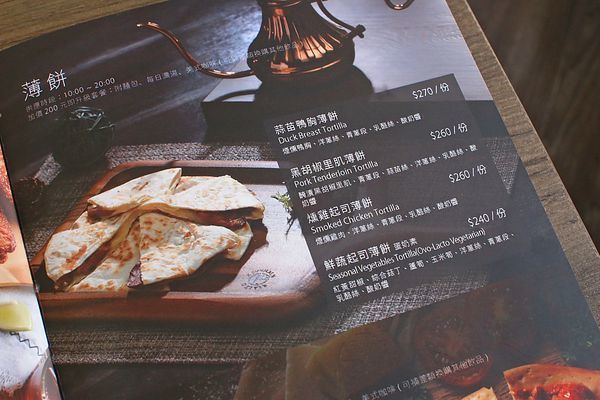 薄餅
供應時段：10:00 ~ 20:00
加價 200 元即升級套餐：附麵包、每日濃湯、美式咖啡 ( 可補差額換購其他飲品 )
蒜苗鴨胸薄餅 $270 / 份
Duck Breast Tortilla
煙燻鴨胸、洋蔥絲、青蔥段、乳酪絲、酸奶醬
黑胡椒里肌薄餅 $260 / 份
Pork Tenderloin Tortilla
醃漬黑胡椒里肌、青蔥段、蒜苗絲、洋蔥絲、乳酪絲、酸
奶醬
燻雞起司薄餅 $260 / 份
Smoked Chicken Tortilla
煙燻雞肉、洋蔥絲、青蔥段、乳酪絲、酸奶醬
鮮蔬起司薄餅 蛋奶素 $240 / 份
Seasonal Vegetables Tortilla(Ovo-Lacto Vegetarian)
紅黃甜椒、綜合菇丁、蘆筍、玉米筍、洋蔥絲、青蔥段、
乳酪絲、酸奶醬
美式咖啡 ( 可補差額換購其他飲品 )